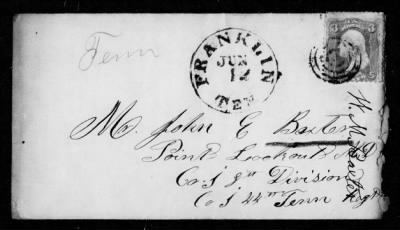 Tenn
FRANKLIN
JUN
12
TEN
3 3
Mr. John E Baxter
Point Lookout Md
Co. I 8th Division
Co I 44th Tenn Regt
W. M. Baxter